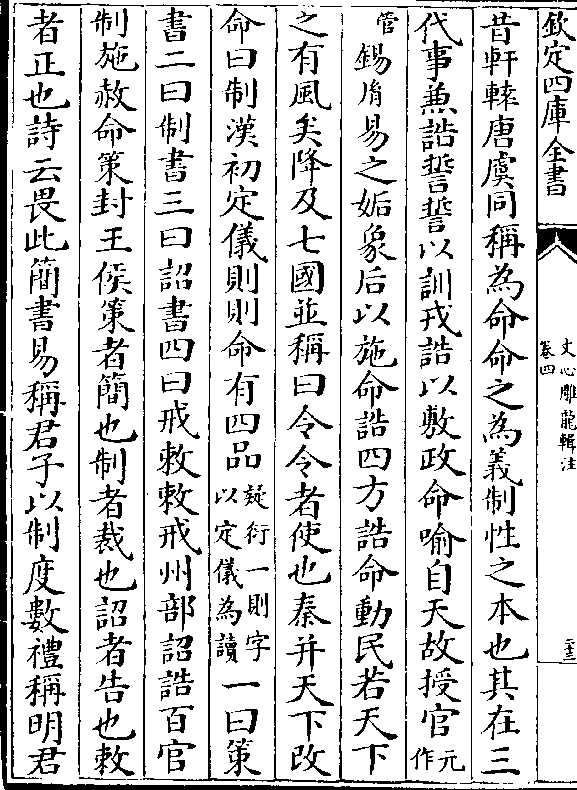 欽定四庫全書
文心雕龍輯注
卷四
二十三
昔軒轅唐虞同稱為命命之為義制性之本也其在三
代事兼誥誓誓以訓戎誥以敷政命喻自天故授官元作
管錫𦙍易之姤象后以施命誥四方誥命動民若天下
之有風矣降及七國並稱曰令令者使也秦并天下改
命曰制漢初定儀則則命有四品疑衍一則字以定儀為讀一曰策
書二曰制書三曰詔書四曰戒敕敕戒州部詔誥百官
制施赦命策封王侯策者簡也制者裁也詔者告也敕
者正也詩云畏此簡書易稱君子以制度數禮稱明君